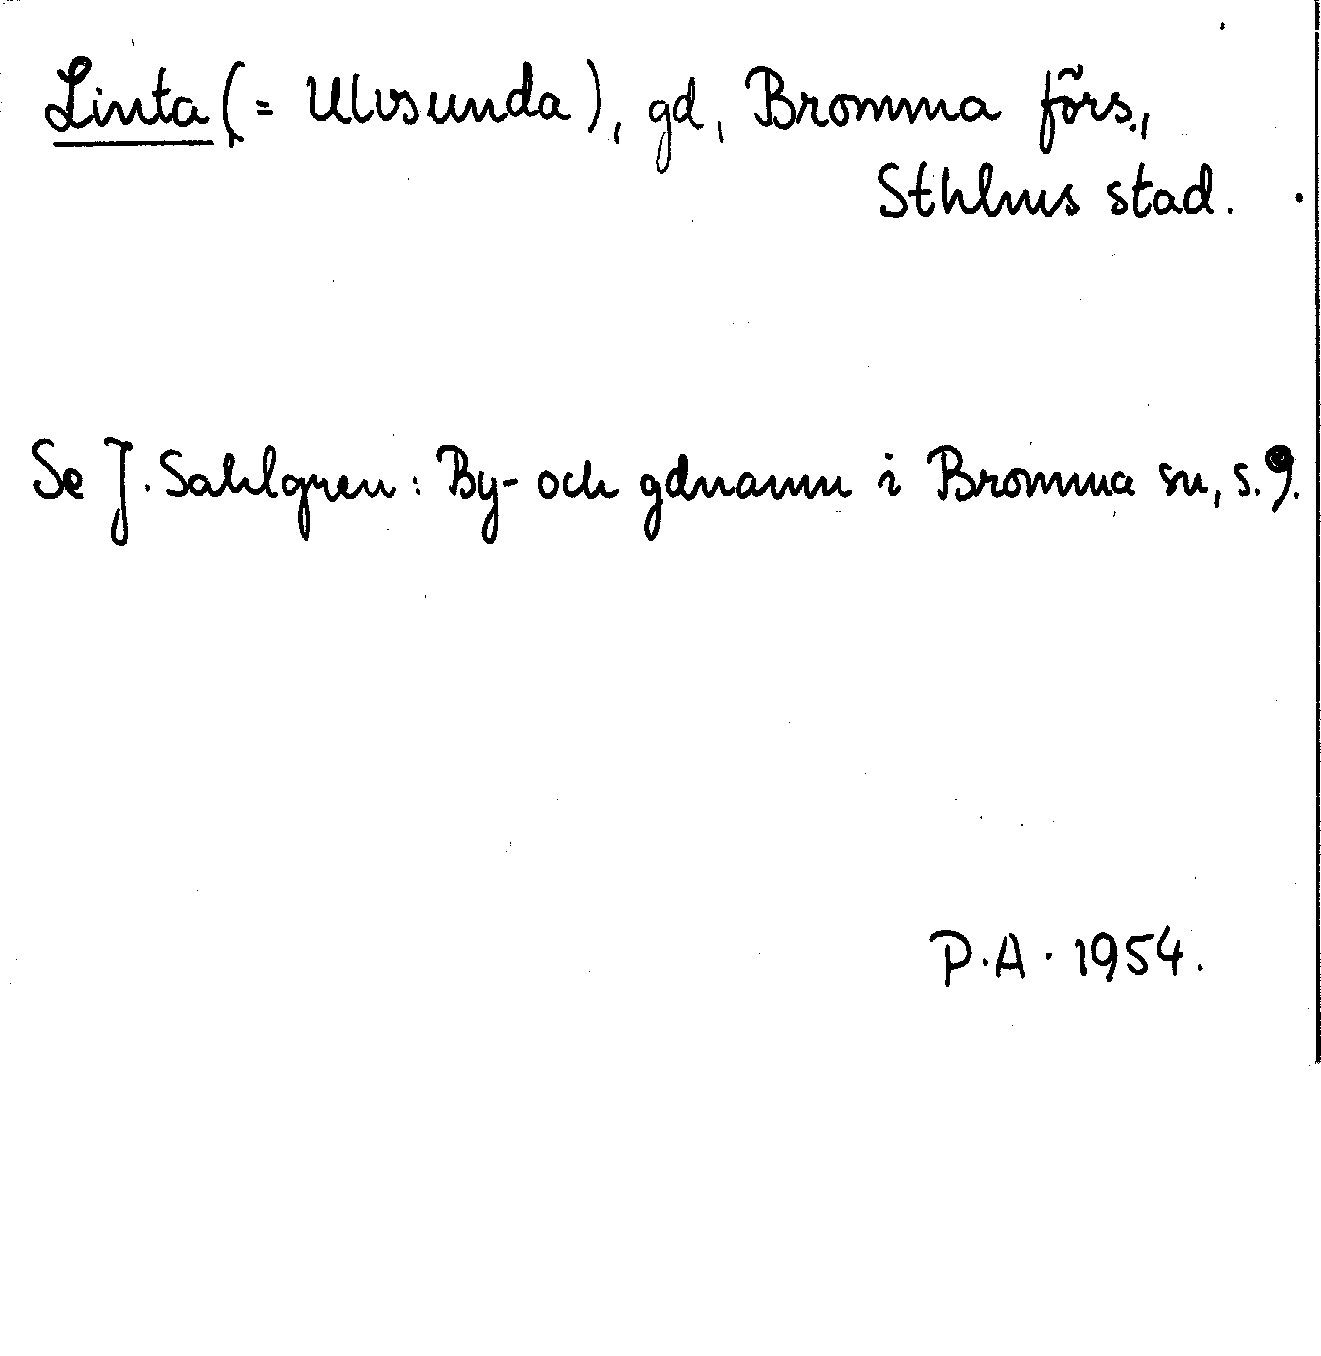 Linta (= Ulvsunda), gd, Bromma förs.,
Sthlms stad.
Se J. Sahlgren: By- och gdnamn i Bromma sn, s. 9.
P.A. 1954.